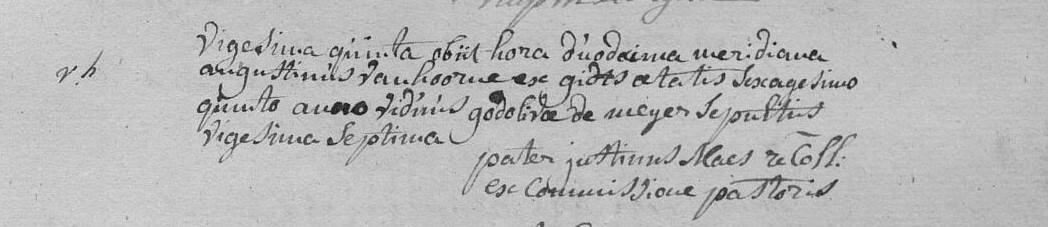 Vigesima quinta obiit hora duodecima meridiana
v h
augustinus vanhoorne ex gidts ætatis sexagesimo
quinto anno viduus godolivæ de meyer sepultus
vigesima septima
pater justinus Maes recoll:
ex commissione pastoris